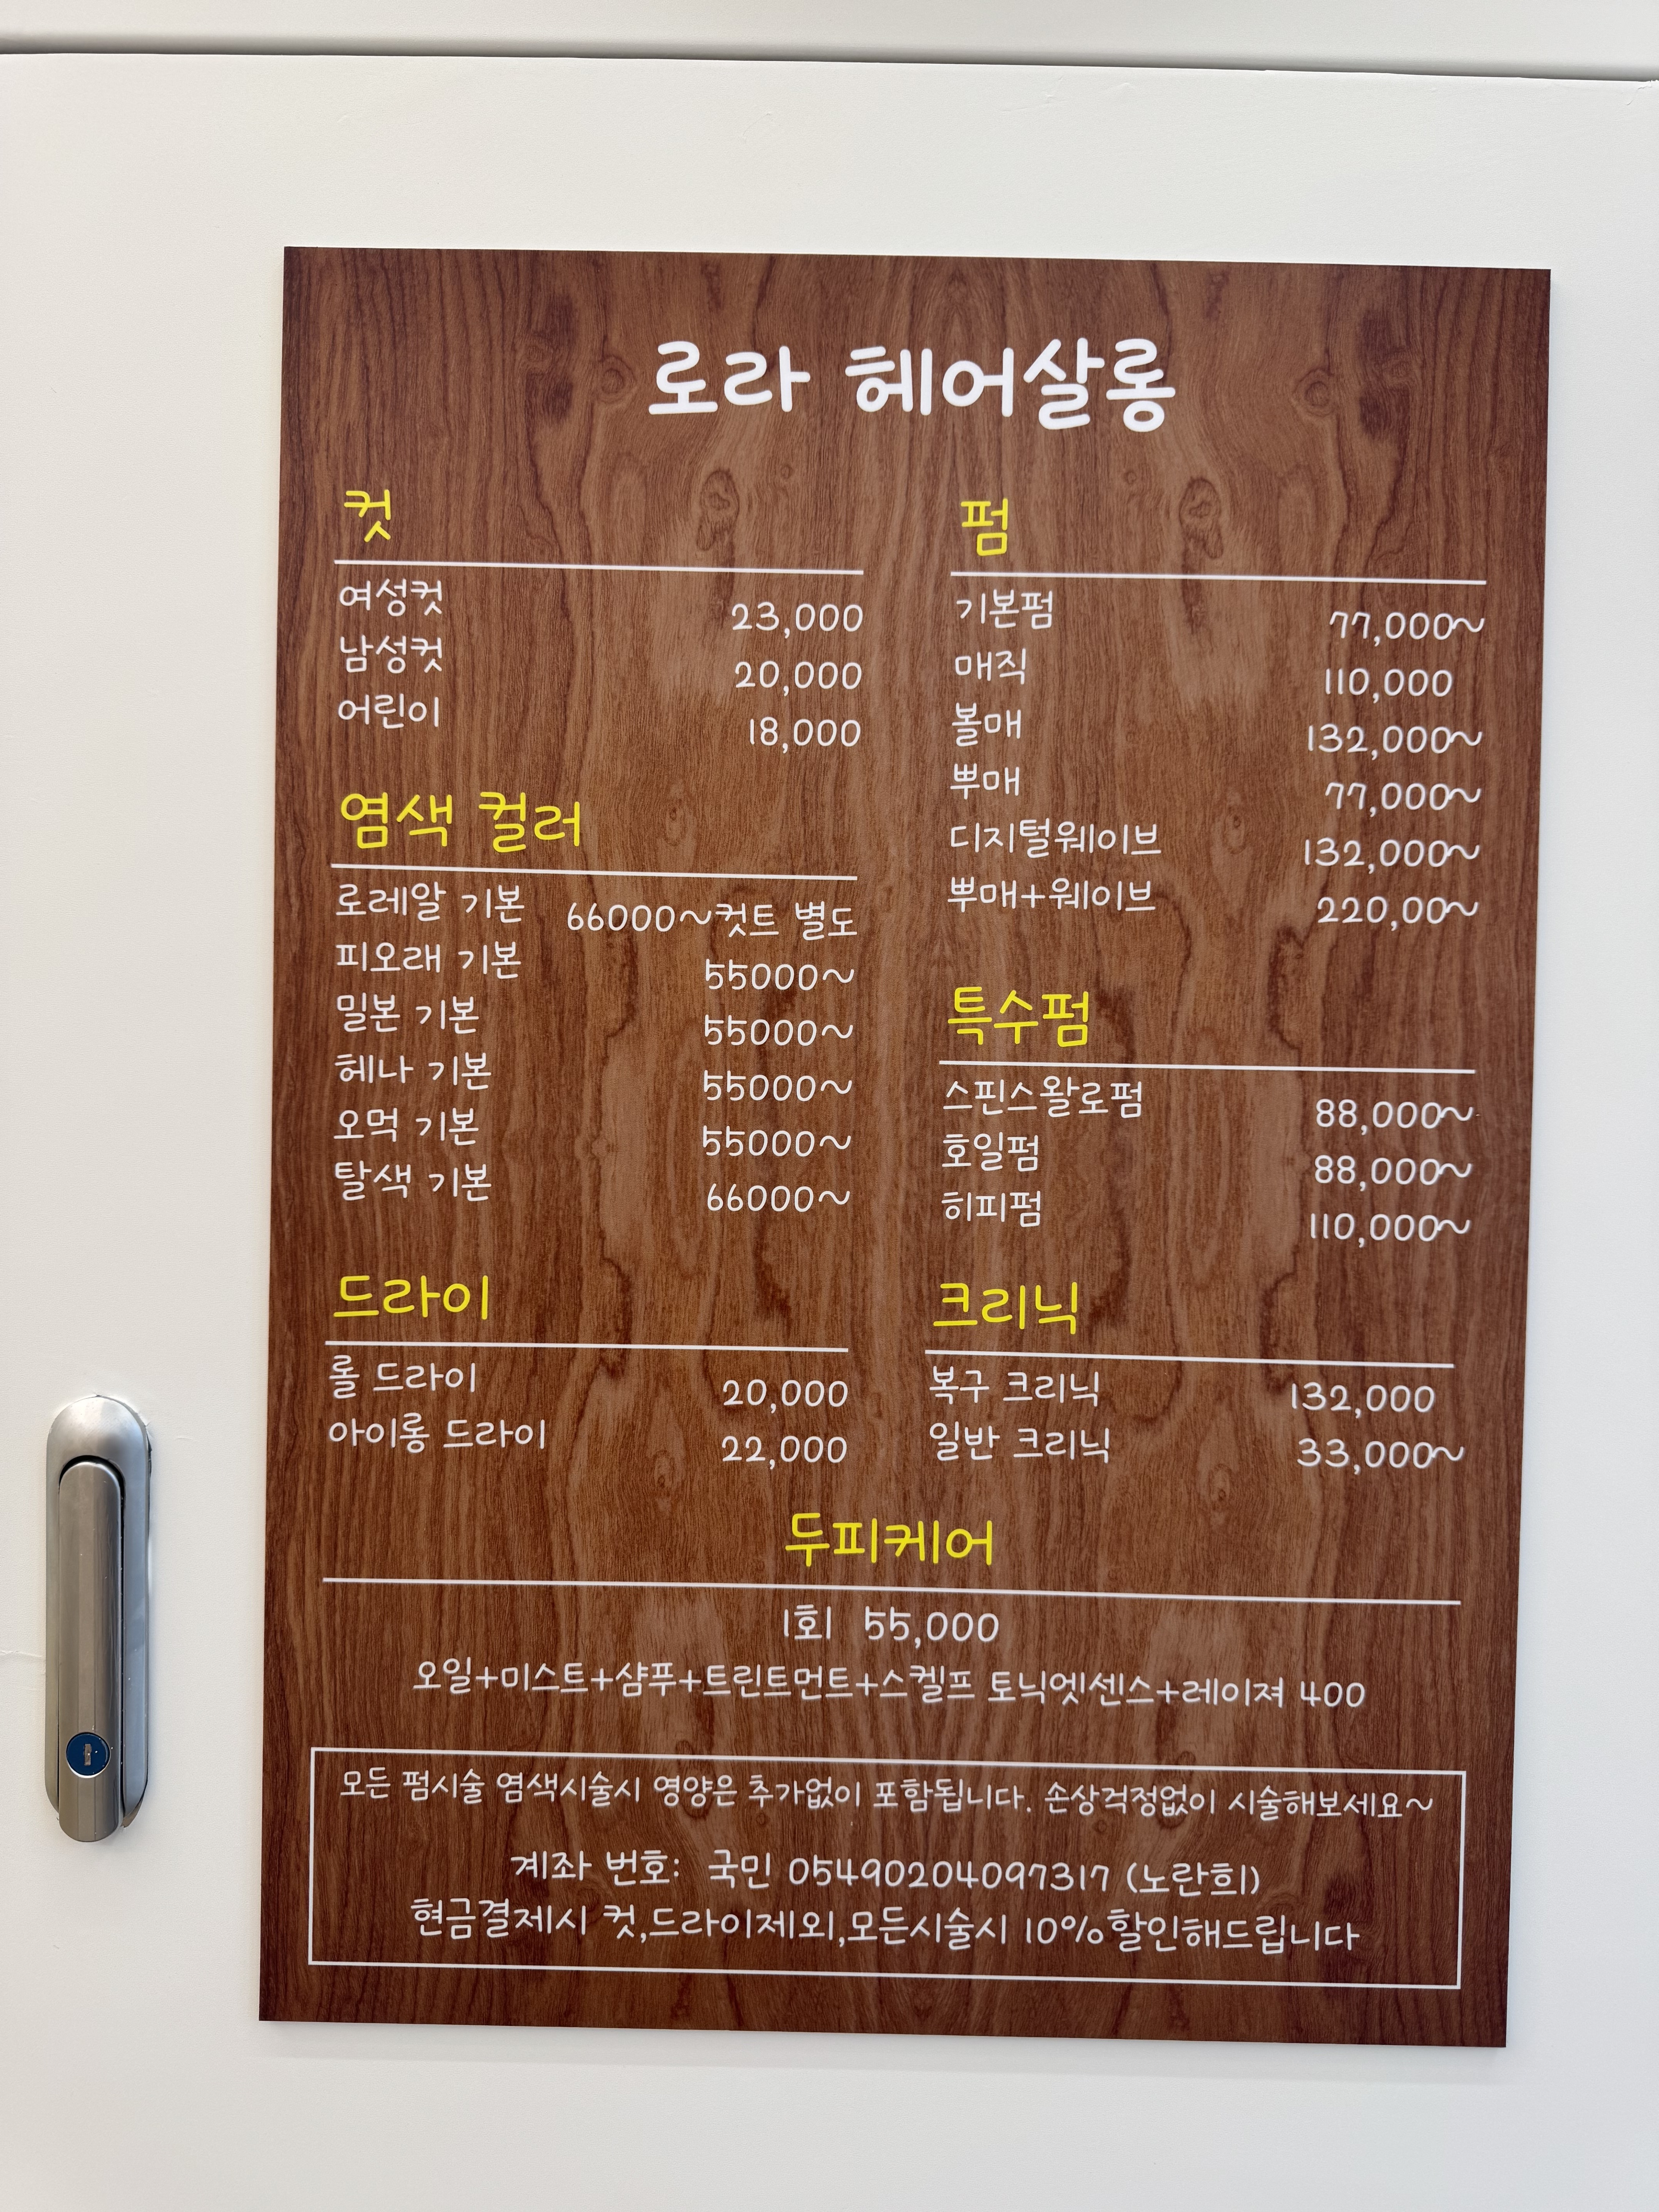 로라 헤어살롱
컷
여성컷 23,000
남성컷 20,000
어린이 18,000
염색 컬러
로레알 기본 66000~컷트 별도
피오래 기본 55000~
밀본 기본 55000~
헤나 기본 55000~
오먹 기본 55000~
탈색 기본 66000~
드라이
롤 드라이 20,000
아이롱 드라이 22,000
펌
기본펌 77,000~
매직 110,000
볼매 132,000~
뿌매 77,000~
디지털웨이브 132,000~
뿌매+웨이브 220,00~
특수펌
스핀스왈로펌 88,000~
호일펌 88,000~
히피펌 110,000~
크리닉
복구 크리닉 132,000
일반 크리닉 33,000~
두피케어
1회 55,000
오일+미스트+샴푸+트린트먼트+스켈프 토닉엣센스+레이져 400
모든 펌시술 염색시술시 영양은 추가없이 포함됩니다. 손상걱정없이 시술해보세요~
계좌 번호: 국민 05490204097317 (노란희)
현금결제시 컷,드라이제외,모든시술시 10%할인해드립니다